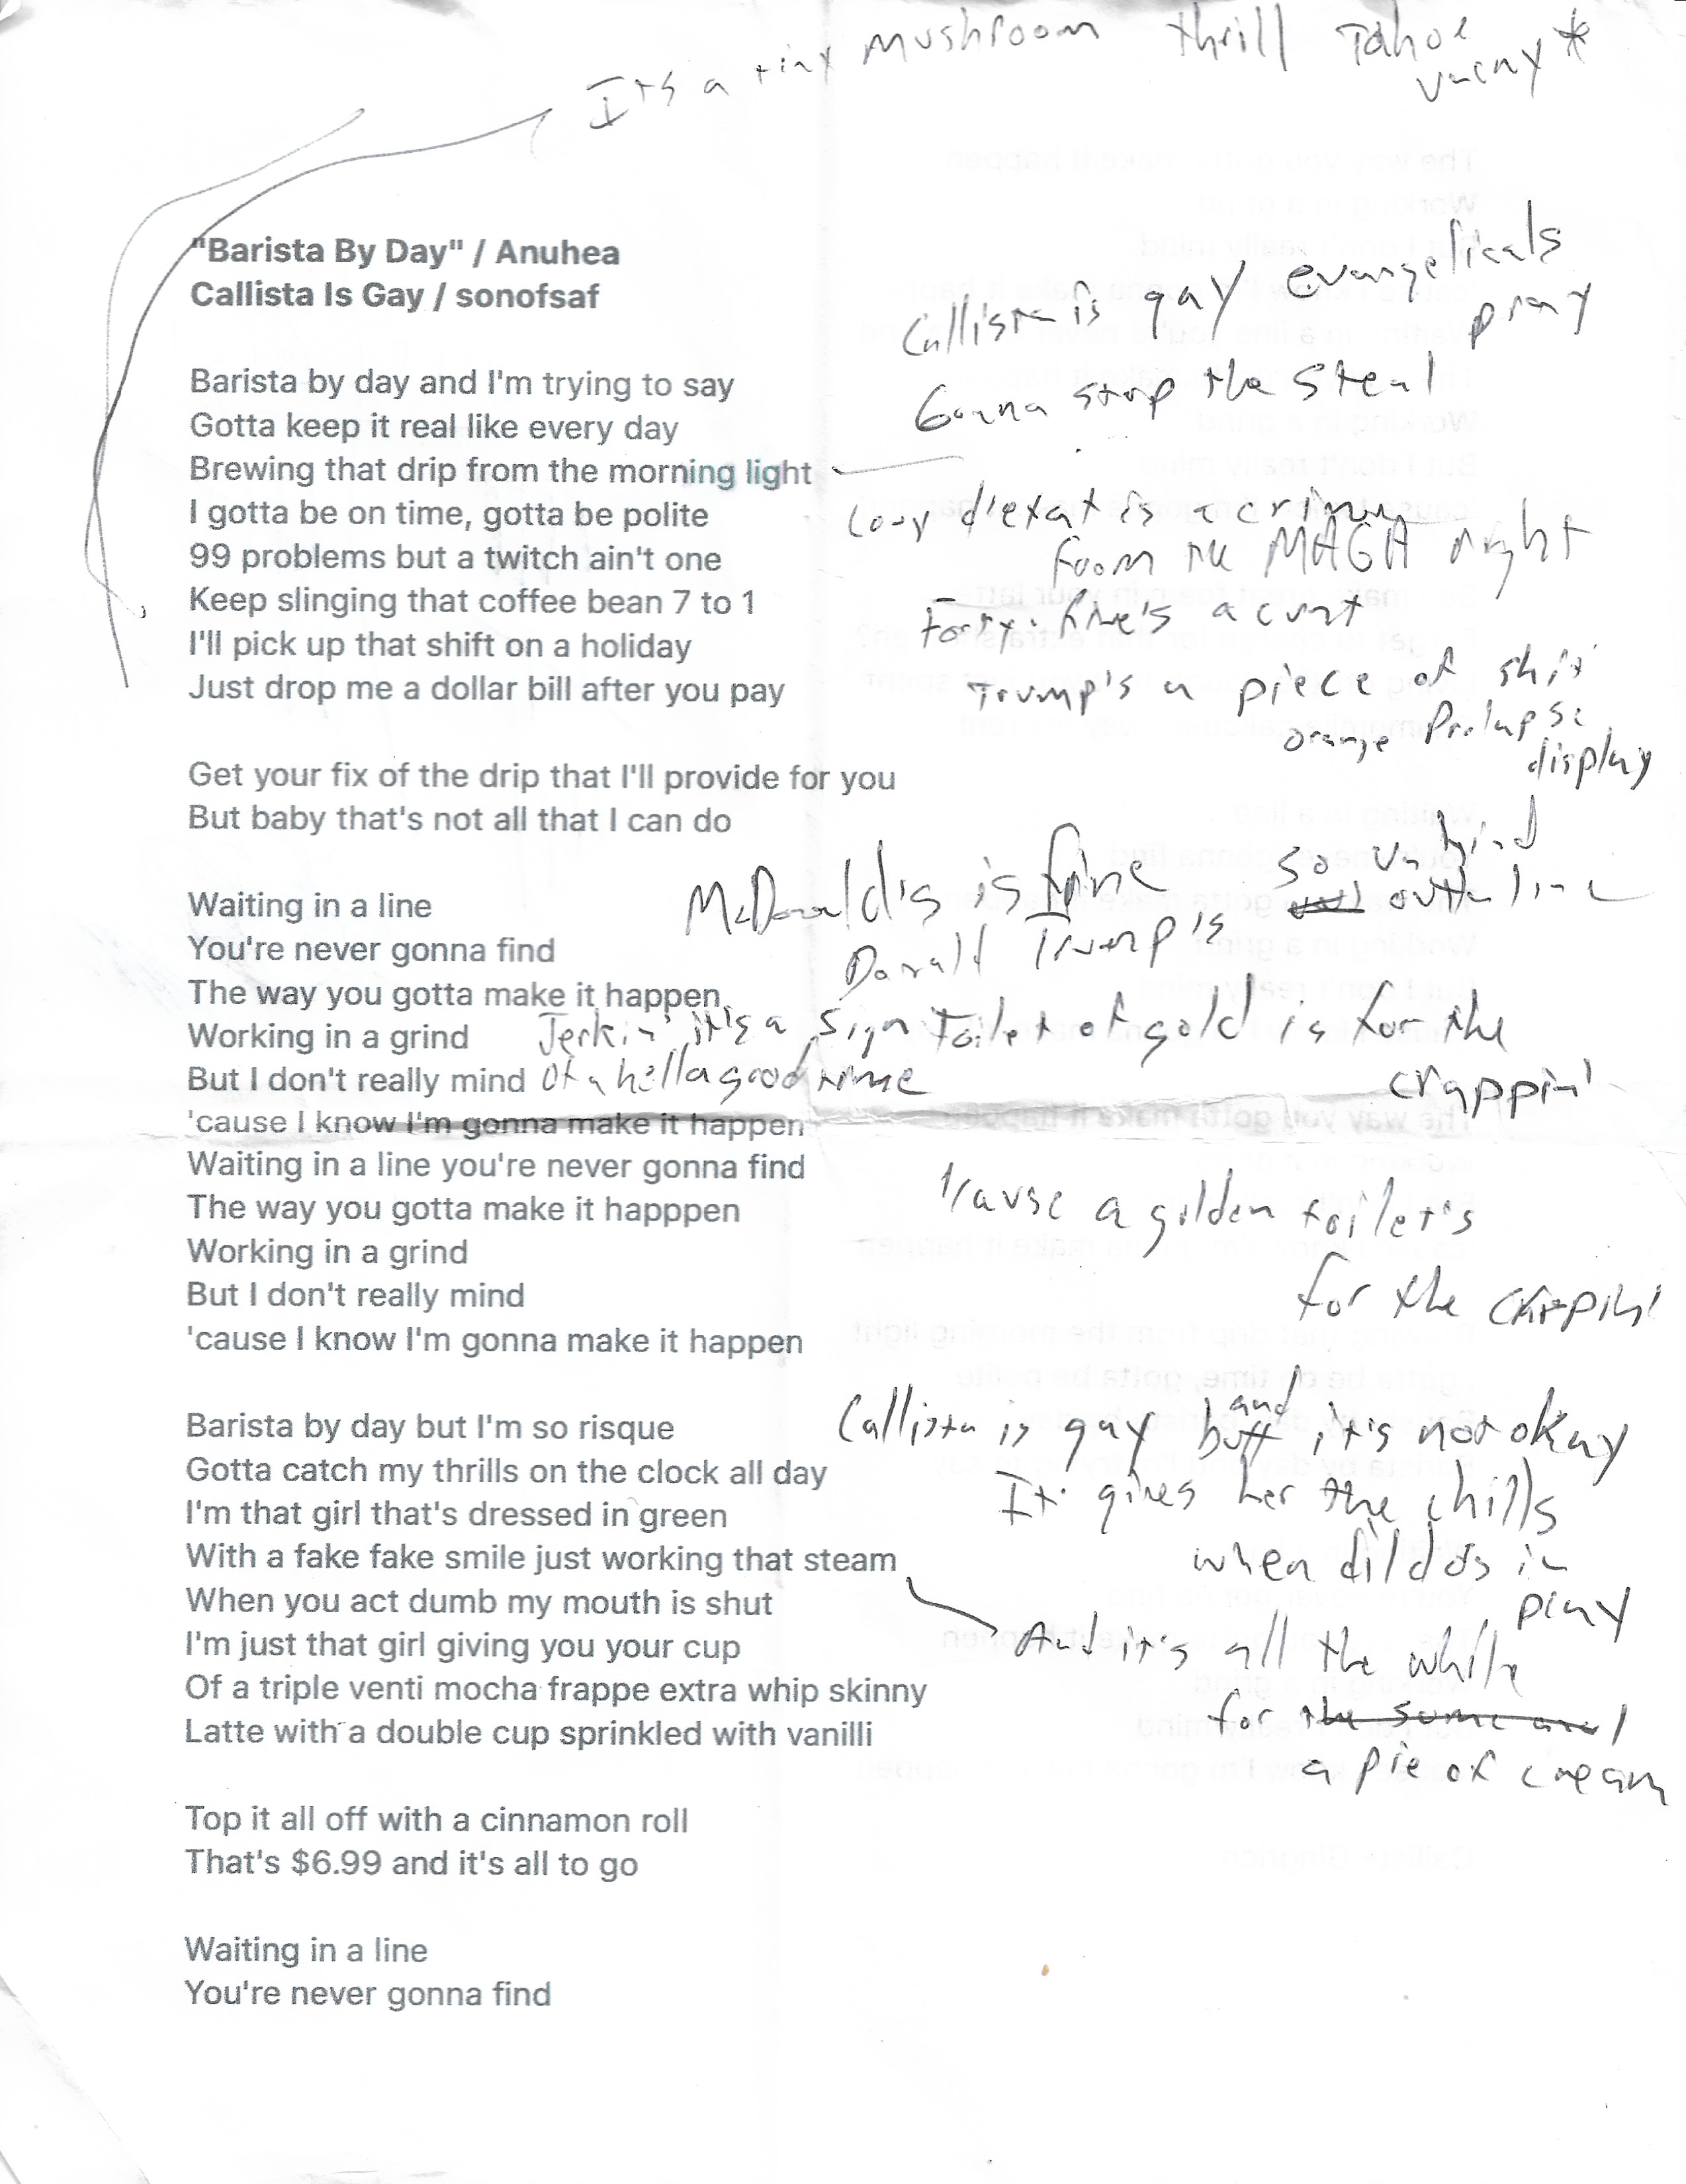 It's a tiny mushroom thrill Tahoe
vacay*
"Barista By Day" / Anuhea
Callista Is Gay / sonofsaf
Callista is gay evangelicals
pray
Gonna stop the steal
Barista by day and I'm trying to say
Gotta keep it real like every day
Brewing that drip from the morning light
I gotta be on time, gotta be polite
99 problems but a twitch ain't one
Keep slinging that coffee bean 7 to 1
I'll pick up that shift on a holiday
Just drop me a dollar bill after you pay
coup d'etat is a crime
from the MAGA right
Forty-five's a cunt
Trump's a piece of shit
orange prolapse
display
Get your fix of the drip that I'll provide for you
But baby that's not all that I can do
Waiting in a line
You're never gonna find
The way you gotta make it happen
Working in a grind
But I don't really mind
'cause I know I'm gonna make it happen
McDonald's is fine
Donald Trump's
so
outta line
Jerkin' it's a sign
of a hella good time
Toilet of gold is for the
crappin'
Waiting in a line you're never gonna find
The way you gotta make it happpen
Working in a grind
But I don't really mind
'cause I know I'm gonna make it happen
'cause a golden toilet's
for the crappin'
Barista by day but I'm so risque
Gotta catch my thrills on the clock all day
I'm that girl that's dressed in green
With a fake fake smile just working that steam
When you act dumb my mouth is shut
I'm just that girl giving you your cup
Of a triple venti mocha frappe extra whip skinny
Latte with a double cup sprinkled with vanilli
Callista is gay and it's not okay
It gives her the chills
when dildo's in
play
And it's all the while
for the same
a pie of cream
Top it all off with a cinnamon roll
That's $6.99 and it's all to go
Waiting in a line
You're never gonna find